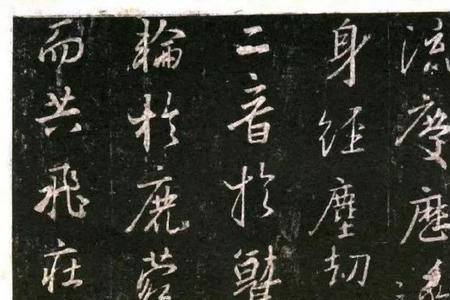 流慶歷遂
身經塵劫
二音於鷲
輪於鹿菀
而共飛莊